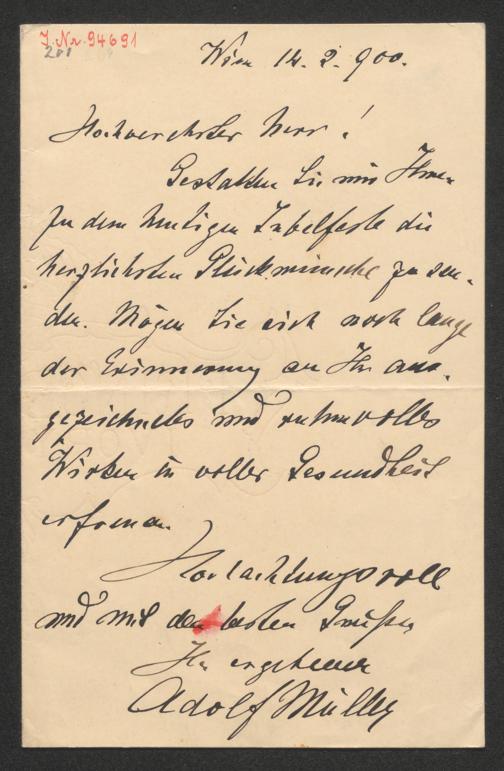 J. Nr. 94691
201
Wien 14. 2. 900.
Hochverehrter Herr!
Gestatten Sie mir Ihnen
zu dem heutigen Jubelfeste die
herzlichsten Glückwünsche zu sen-
den. Mögen Sie sich noch lange
der Erinnerung an Ihr aus-
gezeichnetes und ruhmvolles
Wirken in voller Gesundheit
erfreuen.
Hochachtungsvoll
und mit den besten Grüßen
Ihr ergebener
Adolf Müller